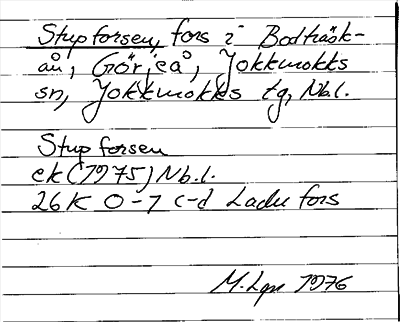 Stupforsen, fors i Bodträsk-
ån, Görjeå, Jokkmokks
sn, Jokkmokks tg, Nb.l.
Stupforsen
ek (1975) Nb.l.
26K 0-1 c-d Ladu fors
M. Lgn 1976